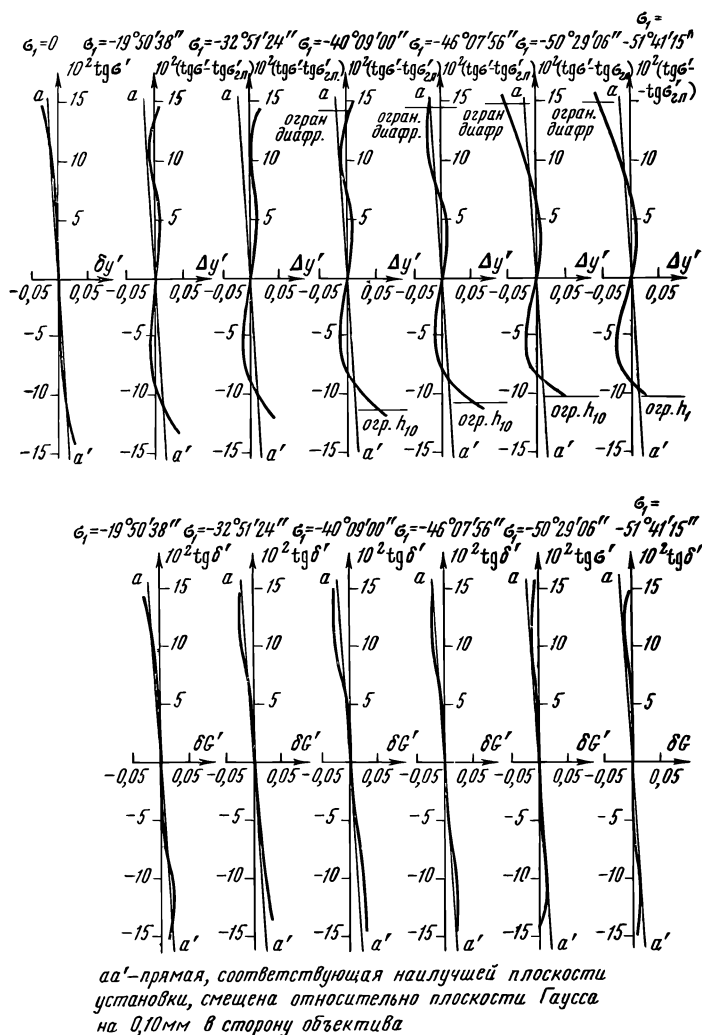 σ₁=
σ₁=0 σ₁=-19°50'38" σ₁=-32°51'24" σ₁=-40°09'00" σ₁=-46°07'56" σ₁=-50°29'06" -51°41'15"
10²tgσ' 10²(tgσ'-tgσ'гл) 10²(tgσ'-tgσ'гл) 10²(tgσ'-tgσ'гл) 10²(tgσ'-tgσ'гл) 10²(tgσ'-tgσгл) 10²(tgσ'-
-tgσ'гл)
a a a a a a a
15 15 15 15 15 15 15
огран огран. огран огран.
диафр. диафр. диафр диафр.
10 10 10 10 10 10 10
5 5 5 5 5 5 5
δy' Δy' Δy' Δy' Δy' Δy' Δy'
-0,05 0,05 -0,05 0,05 -0,05 0,05 -0,05 0,05 -0,05 0,05 -0,05 0,05 -0,05 0,05
-5 -5 -5 -5 -5 -5 -5
-10 -10 -10 -10 -10 -10 -10
огр. h₁₀ огр. h₁₀ огр. h₁₀ огр. h₁
-15 -15 -15 -15 -15 -15 -15
a' a' a' a' a' a' a'
σ₁=
σ₁=-19°50'38" σ₁=-32°51'24" σ₁=-40°09'00" σ₁=-46°07'56" σ₁=-50°29'06" -51°41'15"
10²tgδ' 10²tgδ' 10²tgδ' 10²tgδ' 10²tgσ' 10²tgδ'
a a a a a a
15 15 15 15 15 15
10 10 10 10 10 10
5 5 5 5 5 5
δG' δG' δG' δG' δG' δG
-0,05 0,05 -0,05 0,05 -0,05 0,05 -0,05 0,05 -0,05 0,05 -0,05 0,05
-5 -5 -5 -5 -5 -5
-10 -10 -10 -10 -10 -10
-15 -15 -15 -15 -15 -15
a' a' a' a' a' a'
aa'-прямая, соответствующая наилучшей плоскости
установки, смещена относительно плоскости Гаусса
на 0,10мм в сторону объектива